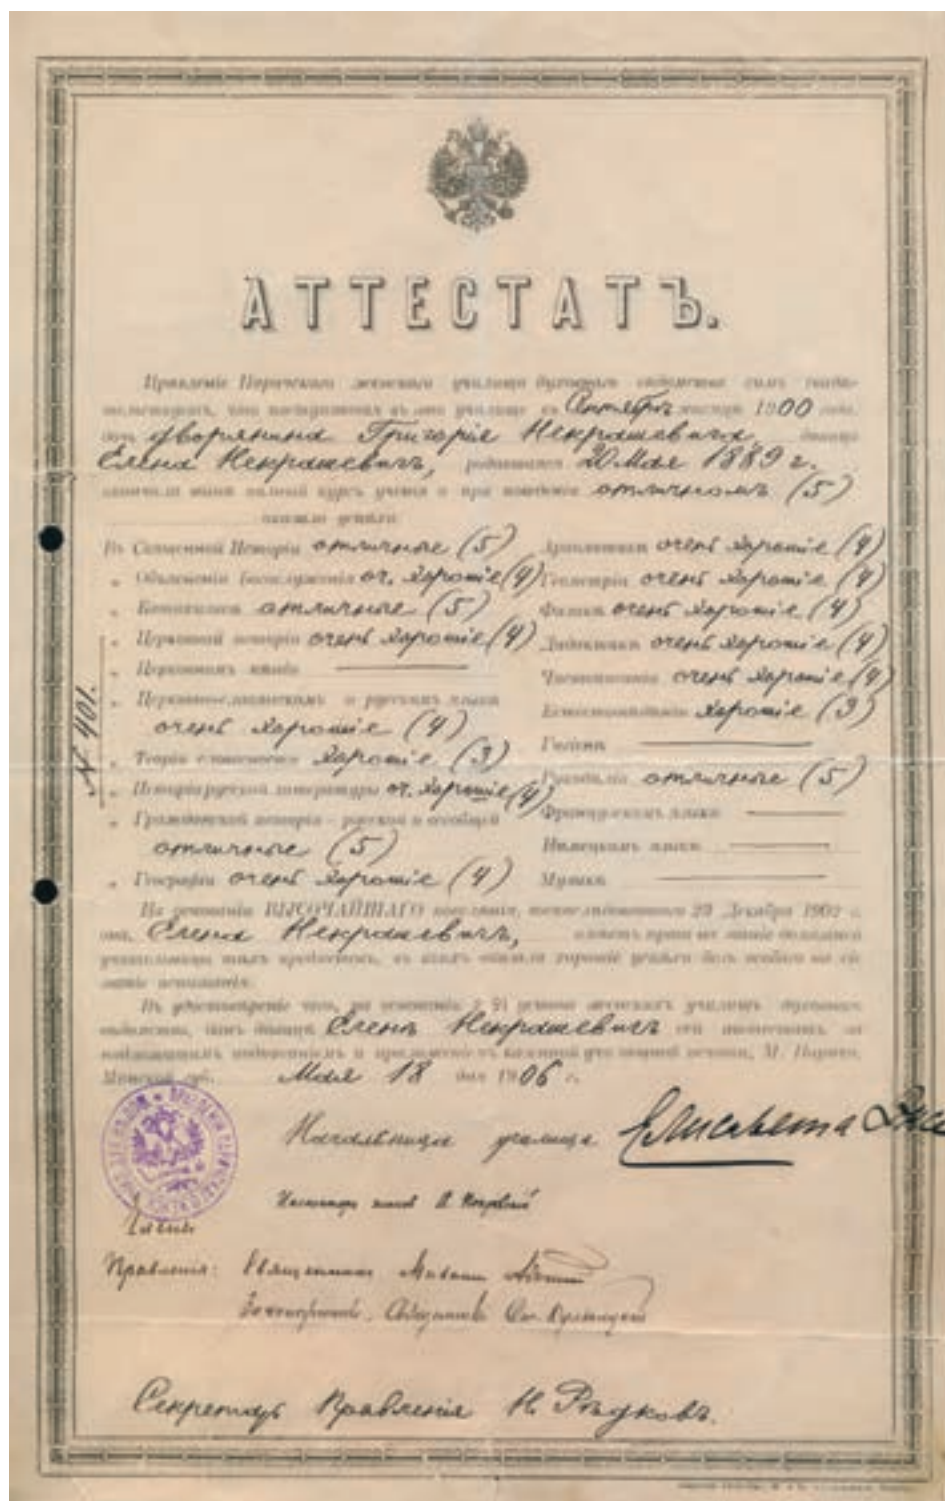 АТТЕСТАТЪ.
Правленіе Паричскаго женскаго училища духовнаго вѣдомства симъ свидѣ-
тельствуетъ, что поступившая въ это училище въ Сентябрѣ мѣсяцѣ 1900 года,
дочь дворянина Григорія Некрашевича, дѣвица
Елена Некрашевичъ, родившаяся 20 Мая 1889 г.
окончила полный курсъ ученія и при поведеніи отличномъ (5)
оказала успѣхи:
Въ Священной Исторіи отличные (5)
„ Объясненіи Богослуженія оч. хорошіе (4)
„ Катихизисѣ отличные (5)
„ Церковной исторіи очень хорошіе (4)
„ Церковномъ пѣніи
„ Церковно-славянскомъ и русскомъ языкѣ
очень хорошіе (4)
„ Теоріи словесности хорошіе (3)
„ Исторіи русской литературы оч. хорошіе (4)
„ Гражданской исторіи – русской и всеобщей
отличные (5)
„ Географіи очень хорошіе (4)
Ариѳметикѣ очень хорошіе (4)
Геометріи очень хорошіе (4)
Физикѣ очень хорошіе (4)
Дидактикѣ очень хорошіе (4)
Чистописаніи очень хорошіе (4)
Естествовѣдѣніи хорошіе (3)
Гигіенѣ
Рукодѣліи отличные (5)
Французскомъ языкѣ
Нѣмецкомъ языкѣ
Музыкѣ
№ 401.
На основаніи ВЫСОЧАЙШАГО повелѣнія, воспослѣдовавшаго 29 Декабря 1902 г.
она, Елена Некрашевичъ, имѣетъ право на званіе домашней
учительницы тѣхъ предметовъ, въ коихъ оказала хорошіе успѣхи безъ особаго на сіе
званіе испытанія.
Въ удостовѣреніе чего, на основаніи § 91 устава женскихъ училищъ духовнаго
вѣдомства, данъ дѣвицѣ Еленѣ Некрашевичъ сей аттестатъ, за
надлежащимъ подписаніемъ и приложеніемъ казенной училищной печати, М. Паричи,
Минской губ. Мая 18 дня 1906 г.
Начальница училища Елисавета
Члены
Правленія: Священникъ
Секретарь Правленія Н. Рѣдковъ.